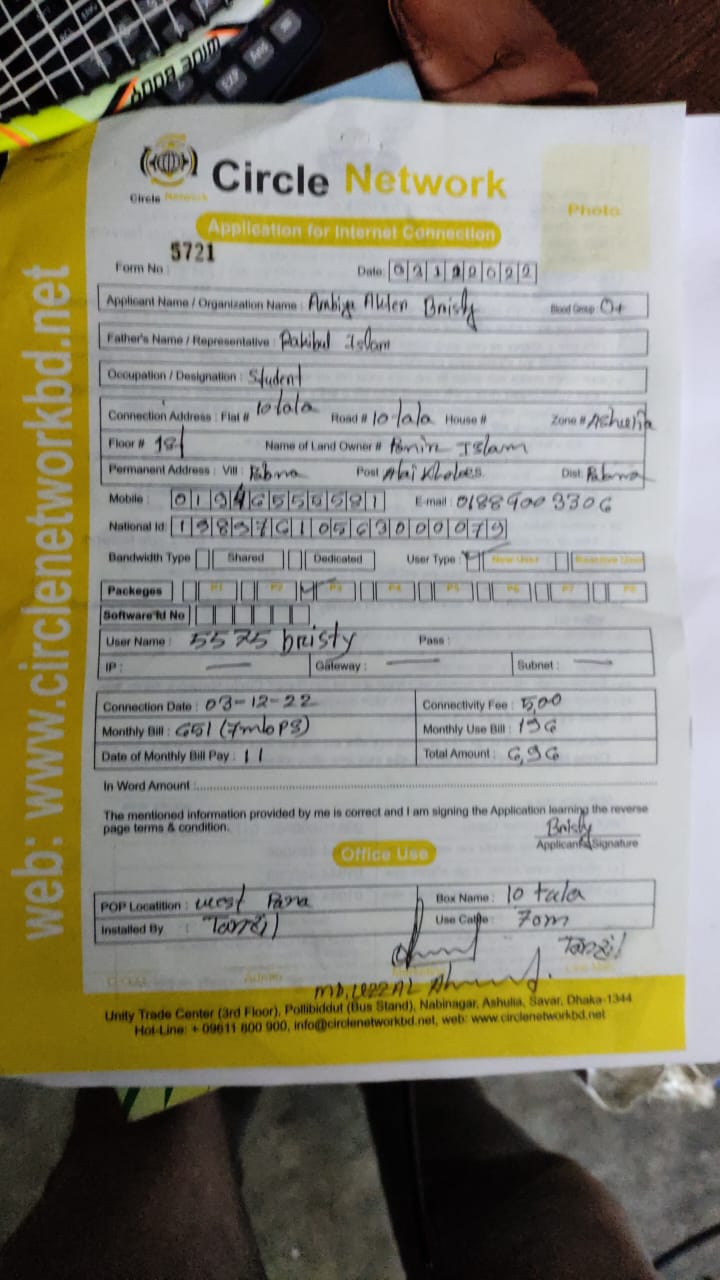 WIDE BODY
Circle Network
Circle Network
Photo
Application for Internet Connection
Form No : 5721
Date: 03122022
Applicant Name / Organization Name : Ambiya Akter Bristy Blood Group O+
Father's Name / Representative : Rakibul Islam
Occupation / Designation : Student
Connection Address : Flat # 10 tala Road # 10 tala House # Zone # Ashulia
Floor # 1st Name of Land Owner # Islam
Permanent Address : Vill : Pabna Post Dist: Pabna
Mobile : 01946555581 E-mail : 01889003306
National Id: 19897610563000079
Bandwidth Type Shared Dedicated User Type : New User
Packeges P1 P2 P3 P4 P5 P6 P7 P8
Software Id No
User Name : 5575 bristy Pass :
IP : — Gateway : — Subnet : —
Connection Date : 03-12-22 Connectivity Fee : 500
Monthly Bill : 651 (7mbps) Monthly Use Bill : 196
Date of Monthly Bill Pay : 11 Total Amount : 696
In Word Amount :
The mentioned information provided by me is correct and I am signing the Application learning the reverse
page terms & condition.
Bristy
Applicant Signature
Office Use
POP Localition : west Para Box Name : 10 tala
Installed By : Tanzil Use Calbe : 70m
Tanzil
Admin
Unity Trade Center (3rd Floor), Pollibiddut (Bus Stand), Nabinagar, Ashulia, Savar, Dhaka-1344
Hot-Line: + 09611 800 900, info@circlenetworkbd.net, web: www.circlenetworkbd.net
web: www.circlenetworkbd.net